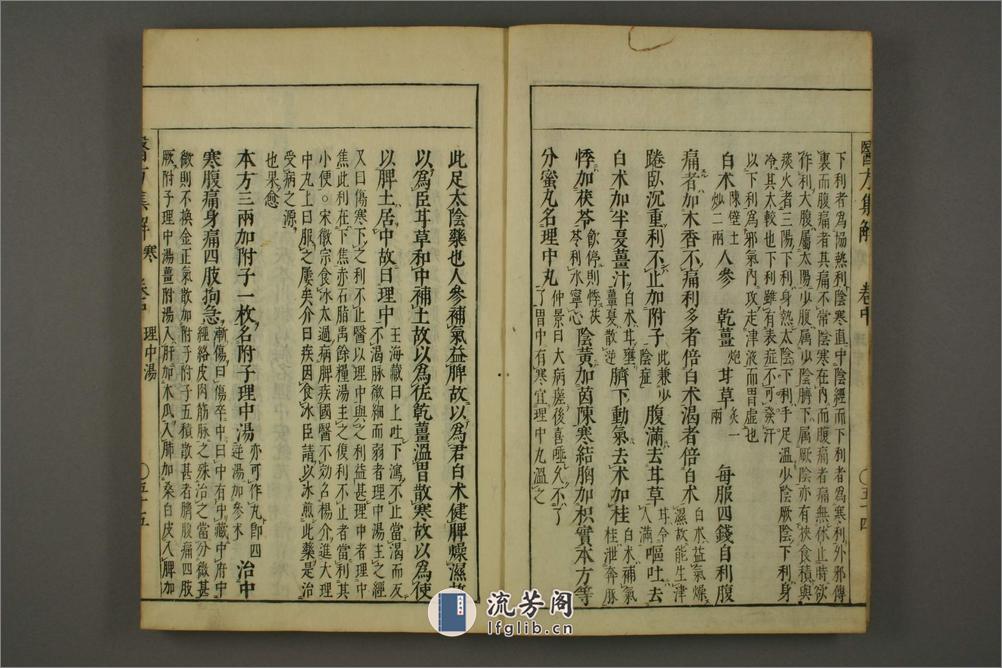 醫方集解
卷中
〇五十四
下利者為協熱利陰寒直中陰經而下利者為寒利外邪傳
裏而腹痛者其痛不常陰寒在內而腹痛者痛無休止時欲
作利大腹屬太陰少腹屬少陰臍下屬厥陰亦有挾食積與
痰火者三陽下利身熱太陰下利手足溫少陰厥陰下利身
冷其大較也下利雖有表症不可發汗
以下利為邪氣內攻走津液而胃虛也
白术陳壁土炒二兩人參 乾薑炮 甘草炙一兩 每服四錢自利腹
痛者加木香不痛利多者倍白术渴者倍白术白术益氣燥濕故能生津
蹉臥沉重利不止加附子此兼少陰症腹滿去甘草甘令人滿嘔吐去
白术加半夏薑汁白术甘壅薑夏散逆臍下動氣去术加桂白术補氣桂泄奔豚
悸加茯苓飲停則悸茯苓利水寧心陰黃加茵陳寒結胸加枳實本方等
分蜜丸名理中丸仲景曰大病瘥後喜唾久不了了胃中有寒宜理中丸溫之
此足太陰藥也人參補氣益脾故以為君白术健脾燥濕故
以為臣甘草和中補土故以為佐乾薑溫胃散寒故以為使
以脾土居中故曰理中王海藏曰上吐下瀉不止當渴而反
不渴脉微細而弱者理中湯主之經
又曰傷寒下之利不止醫以理中與之利益甚理中者理中
焦此利在下焦赤石脂禹餘糧湯主之復利不止者當利其
小便。宋徽宗食冰太過病脾疾國醫不効召楊介進大理
中丸上曰服之屢矣介曰疾因食冰臣請以冰煎此藥是治
受病之源
也果愈
本方三兩加附子一枚名附子理中湯亦可作丸卽四逆湯加參术治中
寒腹痛身痛四肢拘急漸傷曰傷卒中曰中有中臟中府中
經絡皮肉筋脉之殊治之當分微甚
微則不換金正氣散加附子附子五積散甚者臍腹痛四肢
厥附子理中湯薑附湯入肝加木瓜入肺加桑白皮入脾加
醫方集解
寒
卷中
理中湯
〇五十五
流芳阁
lfglib.cn